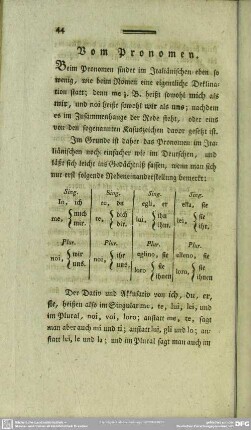 44
Vom Pronomen.
Beim Pronomen findet im Italiänischen eben so
wenig, wie beim Nomen eine eigentliche Deklina-
tion statt; denn me z. B. heißt sowohl mich als
mir, und noi heißt sowohl wir als uns; nachdem
es im Zusammenhange der Rede steht, oder eins
von den sogenannten Kasuszeichen davor gesetzt ist.
Im Grunde ist daher das Pronomen im Ita-
liänischen noch einfacher wie im Deutschen, und
läßt sich leicht ins Gedächtniß fassen, wenn man sich
nur erst folgende Nebeneinanderstellung bemerkt:
Sing. Sing. Sing. Sing.
io, ich tu, du egli, er ella, sie
me, mich mir. te, dich dir. lui, ihn ihm. lei, sie ihr.
Plur. Plur. Plur. Plur.
noi, wir uns. voi, ihr euch. eglino, sie elleno, sie
loro sie ihnen loro, sie ihnen
Der Dativ und Akkusativ von ich, du, er,
sie, heißen also im Singular me, te, lui, lei, und im
Plural, noi, voi, loro; anstatt me, te, sagt
man aber auch mi und ti; anstatt lui, gli und lo; an-
statt lei, le und la; und im Plural sagt man auch im